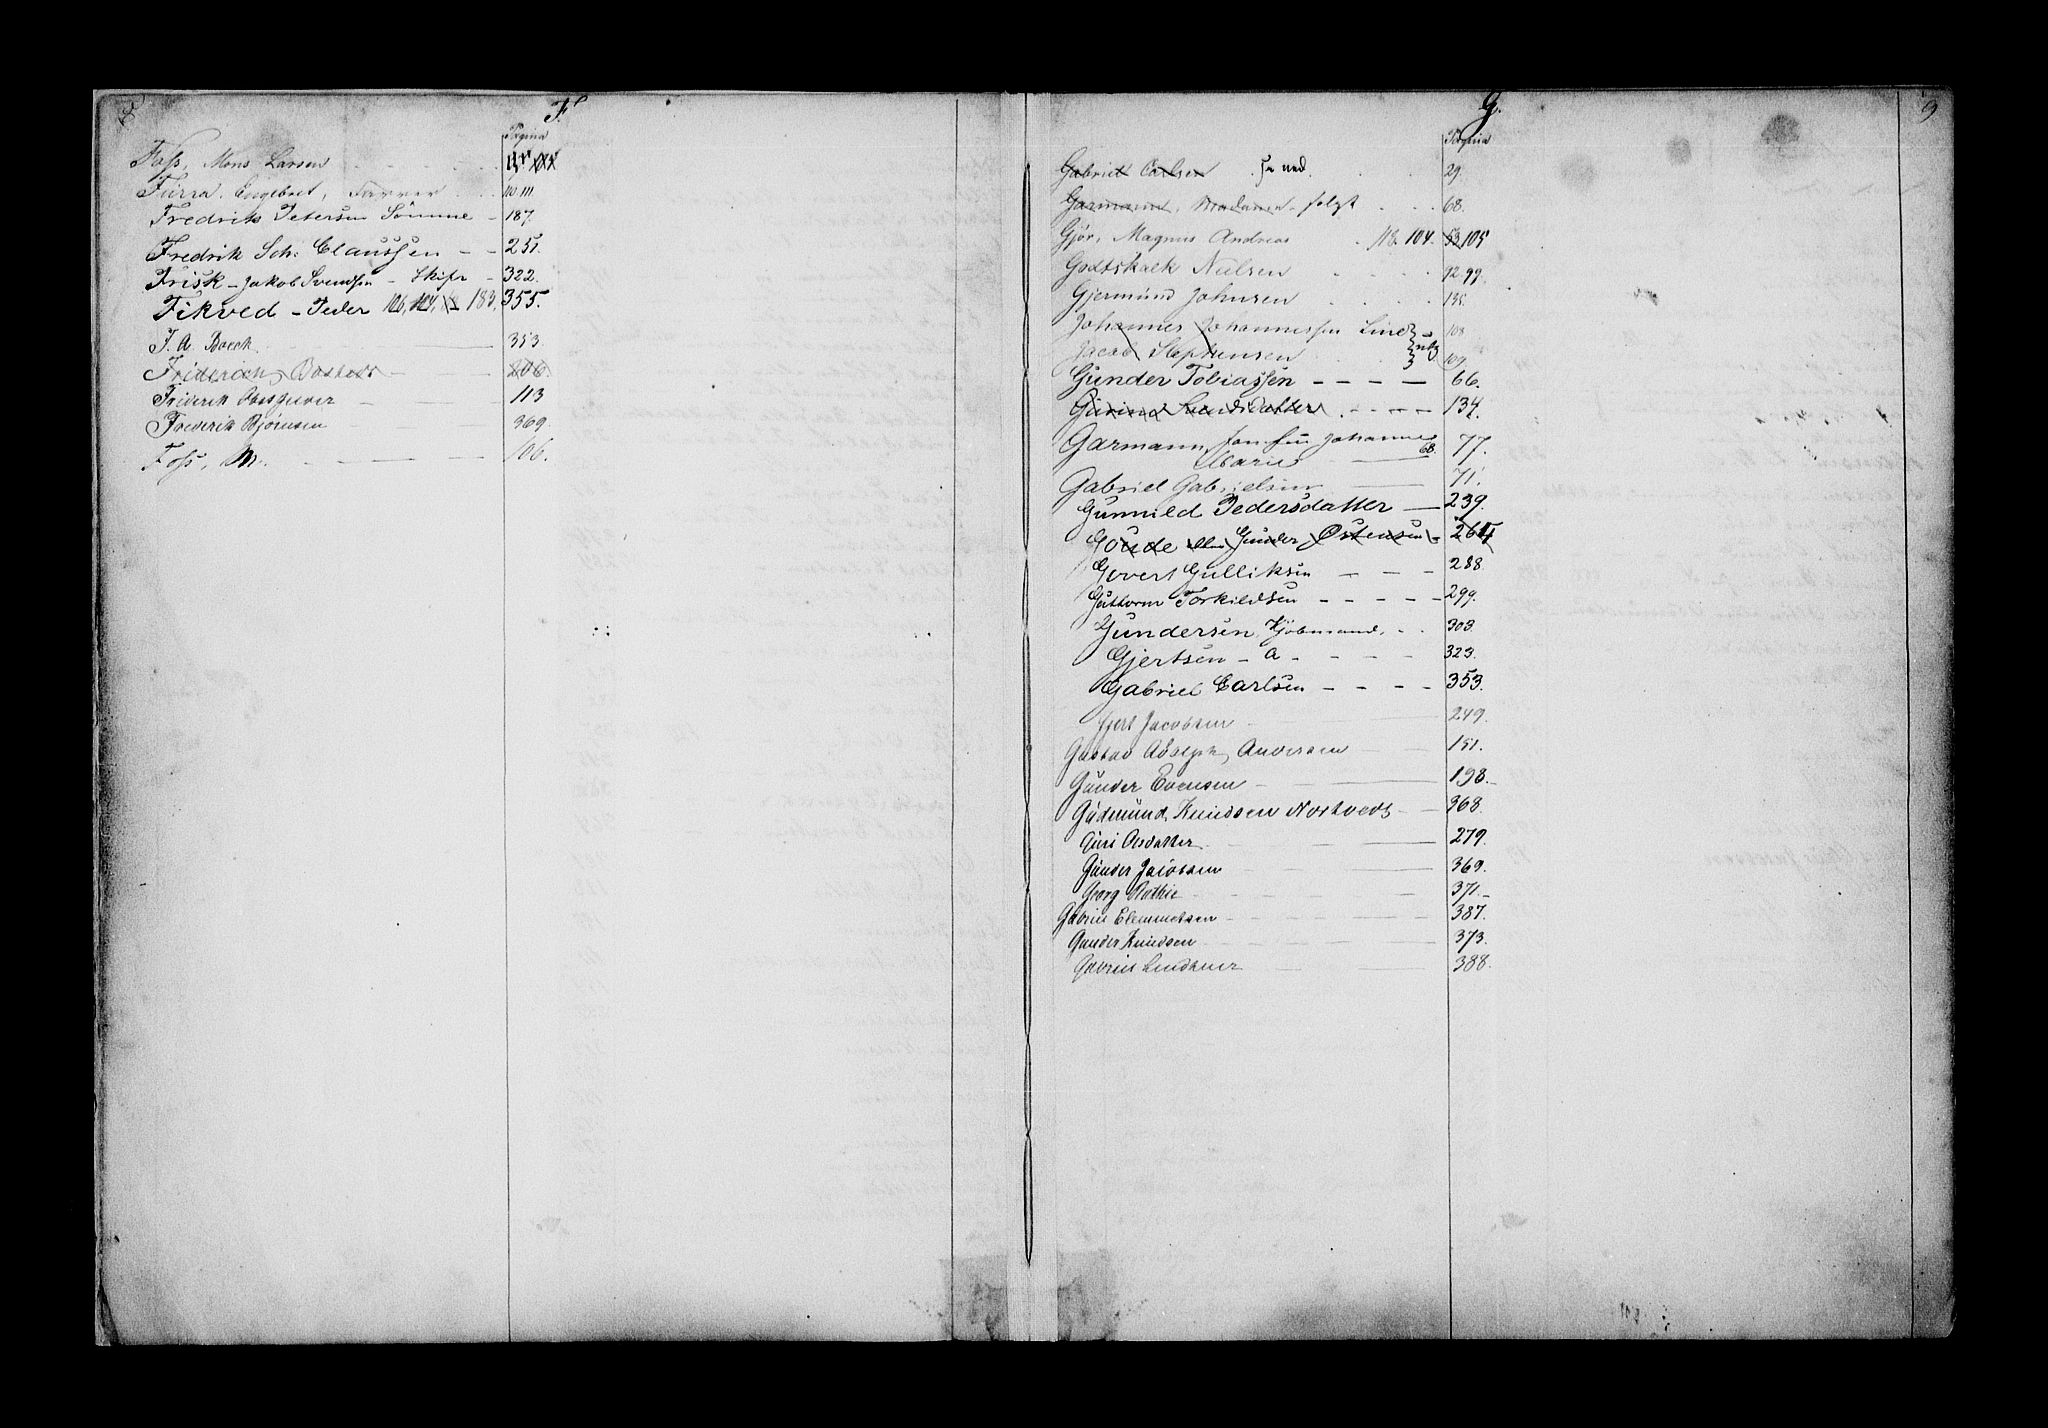 8
F.
Pagina
Foss, Mons Larsen
Furra, Engebret, Farver 110 111
Fredrik Petersen Sömme – 187.
Fredrik Sch: Claussen – – 251.
Frisk – Jakob Svendsen – Skifr – 322.
Fikved – Peder 106, 104, 183, 355.
F. A. Boeck 353
Friderich Bastess 206.
Friderik 113
Frederik Bjørnsen 369.
Foss, M. 106.
9
G.
Pagina
Gabriel Carlsen . se ned. 29.
Garmann, Madame – solgt 68.
Gjör, Magnus Andreas 118. 104. 53 105
Godtskalk Nielsen 12. 99.
Gjermund Johnsen 135.
Johannes Johannessen Lind 108
Jacob Stephensen 109.
Gunder Tobiassen – – – – 66.
Gurine Knudsdatter . – – – – 134.
Garmann, Jomfru Johanne 77.
Marie 68.
Gabriel Gabrielsen 71.
Gunnild Pedersdatter – 239.
Goude eller Gunder Østensen – 264
Govert Gulliksen – – – 288.
Guttorm Torkildsen – – – – – 299.
Gundersen, Kjöbmand, – – 303.
Gjertsen – A – – – – 323.
Gabriel Carlsen – – – – 353.
Gjert Jacobsen 249.
Gustav Adolph Andersen 151.
Gunder Evensen 198.
Gudmund Knudsen Nortveds 368.
Guri Olsdatter 279.
Gunder Jacobsen 369.
Georg Rathie 371.
Gabriel Clemmetsen 387.
Gunder Knudsen 373.
Gabriel Lindtner 388.